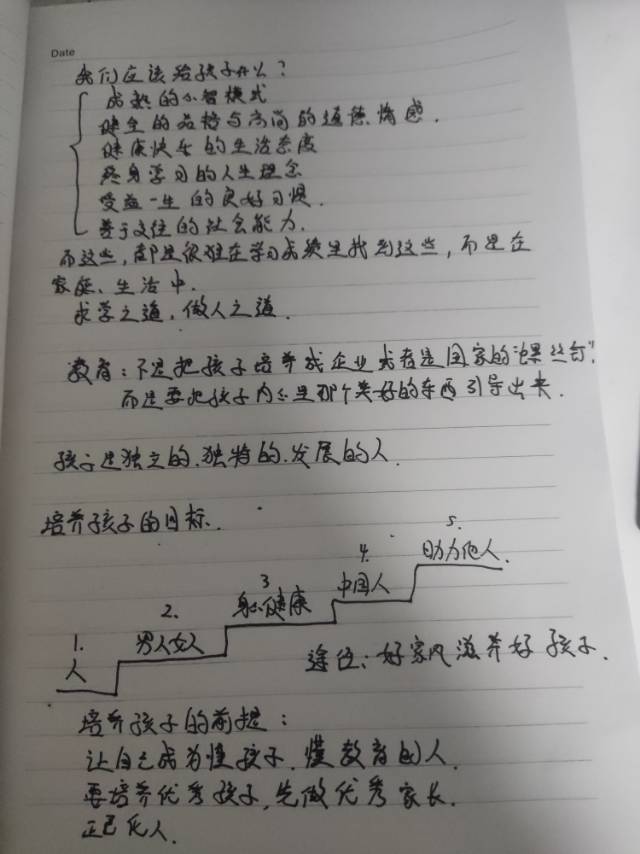 Date
我们应该给孩子什么?
成熟的心智模式
健全的品格与高尚的道德情感.
健康快乐的生活态度
终身学习的人生理念
受益一生的良好习惯.
善于交往的社会能力.
而这些,都是很难在学习成绩里找到这些,而是在
家庭、生活中.
求学之道,做人之道.
教育:不是把孩子培养成企业或者是国家的"螺丝钉"
而是要把孩子内心里那个美好的东西引导出来.
孩子是独立的.独特的.发展的人.
培养孩子的目标.
1.
人
2.
男人女人
3
身心健康
4.
中国人
5.
助力他人.
途径:好家风滋养好孩子.
培养孩子的前提:
让自己成为懂孩子.懂教育的人.
要培养优秀孩子,先做优秀家长.
正己化人.